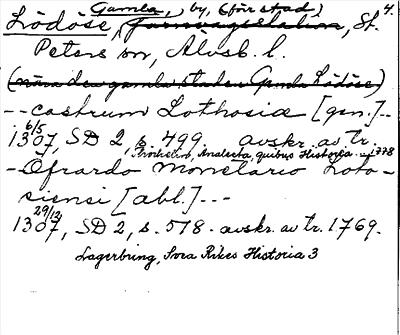 Gamla, by, (för stad) 4.
Lödöse, järnvägsstation, St.
Peters sn, Älvsb. l.
(nära den gamla staden Gamla Lödöse)
-- castrum Lothosiæ [gen.]--
6/5
1307, SD 2, s. 499 avskr. av tr.
Analecta, quibus Historia - 1778
- Ofrardo Monetario Loto-
siensi [abl.] ---
29/12
1307, SD 2, s. 578. avskr. av tr. 1769.
Lagerbring, Svea Rikes Historia 3